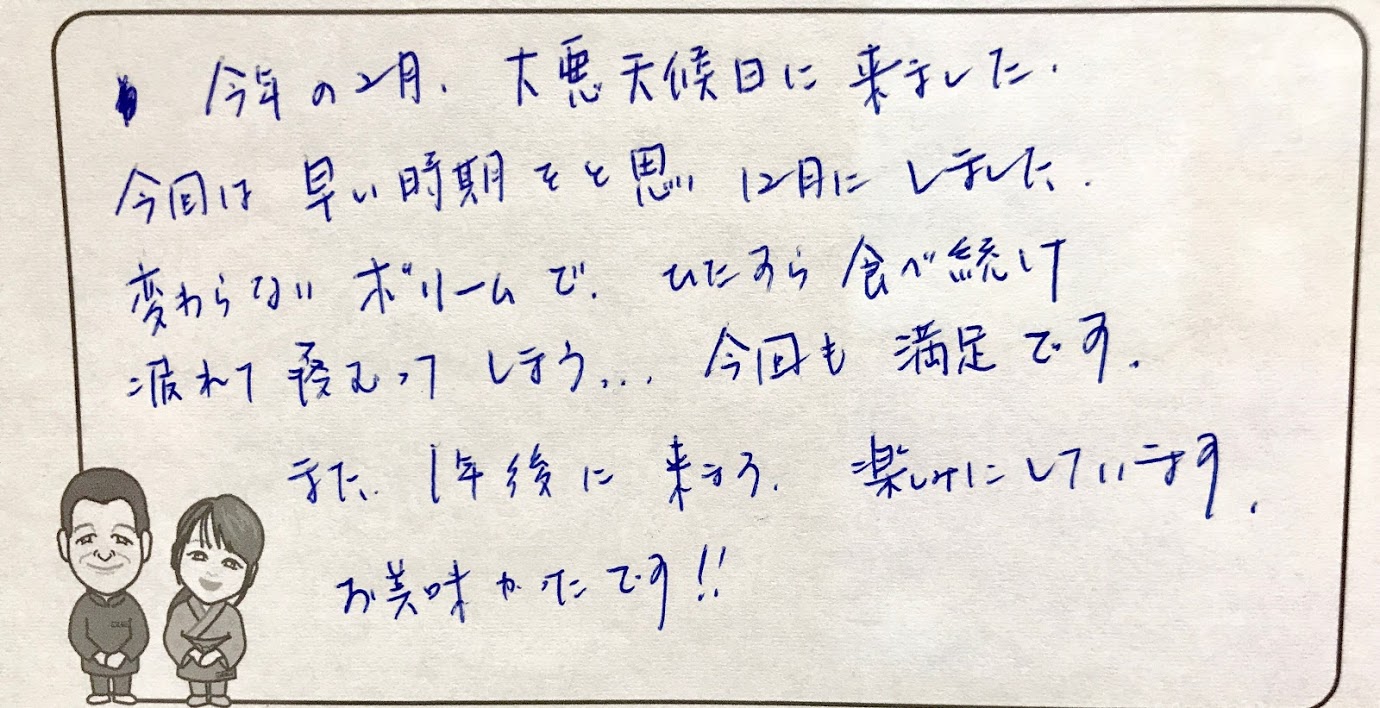 今年の2月、大悪天候日に来ました.
今回は早い時期をと思い12月にしました.
変わらないボリームで、ひたすら食べ続け
疲れて しまう... 今回も満足です.
また、1年後に来まう、楽しみにしています.
お美味かったです!!